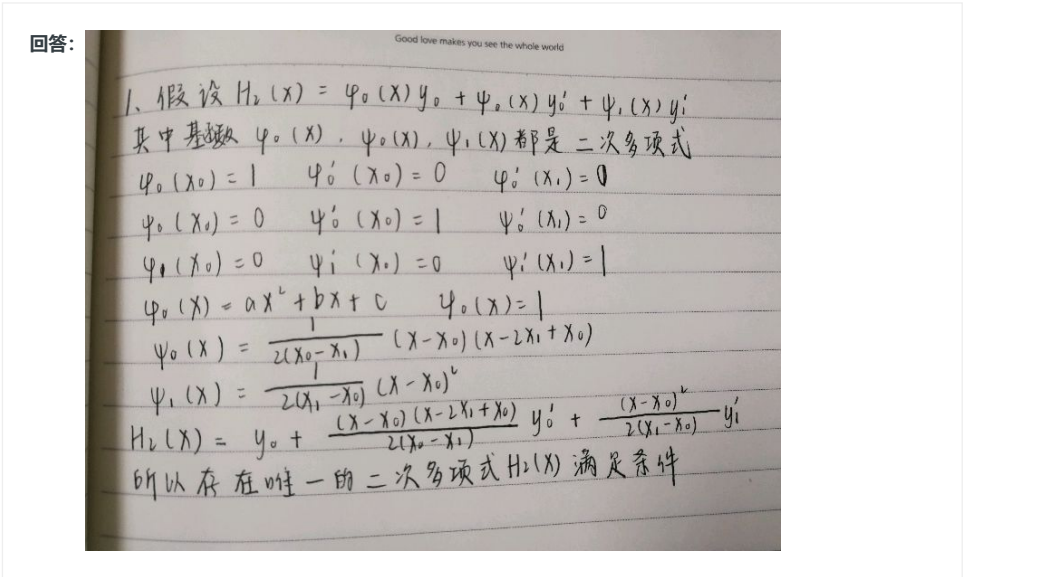 回答：
Good love makes you see the whole world
1、假设 H₂(x) = φ₀(x)y₀ + ψ₀(x)y₀' + ψ₁(x)y₁'
其中基函数 φ₀(x)，ψ₀(x)，ψ₁(x)都是二次多项式
φ₀(x₀)=1 φ₀'(x₀)=0 φ₀'(x₁)=0
ψ₀(x₀)=0 ψ₀'(x₀)=1 ψ₀'(x₁)=0
ψ₁(x₀)=0 ψ₁'(x₀)=0 ψ₁'(x₁)=1
φ₀(x)=ax²+bx+c φ₀(x)=1
ψ₀(x) = 1/(2(x₀-x₁)) (x-x₀)(x-2x₁+x₀)
ψ₁(x) = 1/(2(x₁-x₀)) (x-x₀)²
H₂(x) = y₀ + (x-x₀)(x-2x₁+x₀)/(2(x₀-x₁)) y₀' + (x-x₀)²/(2(x₁-x₀)) y₁'
所以存在唯一的二次多项式H₂(x)满足条件